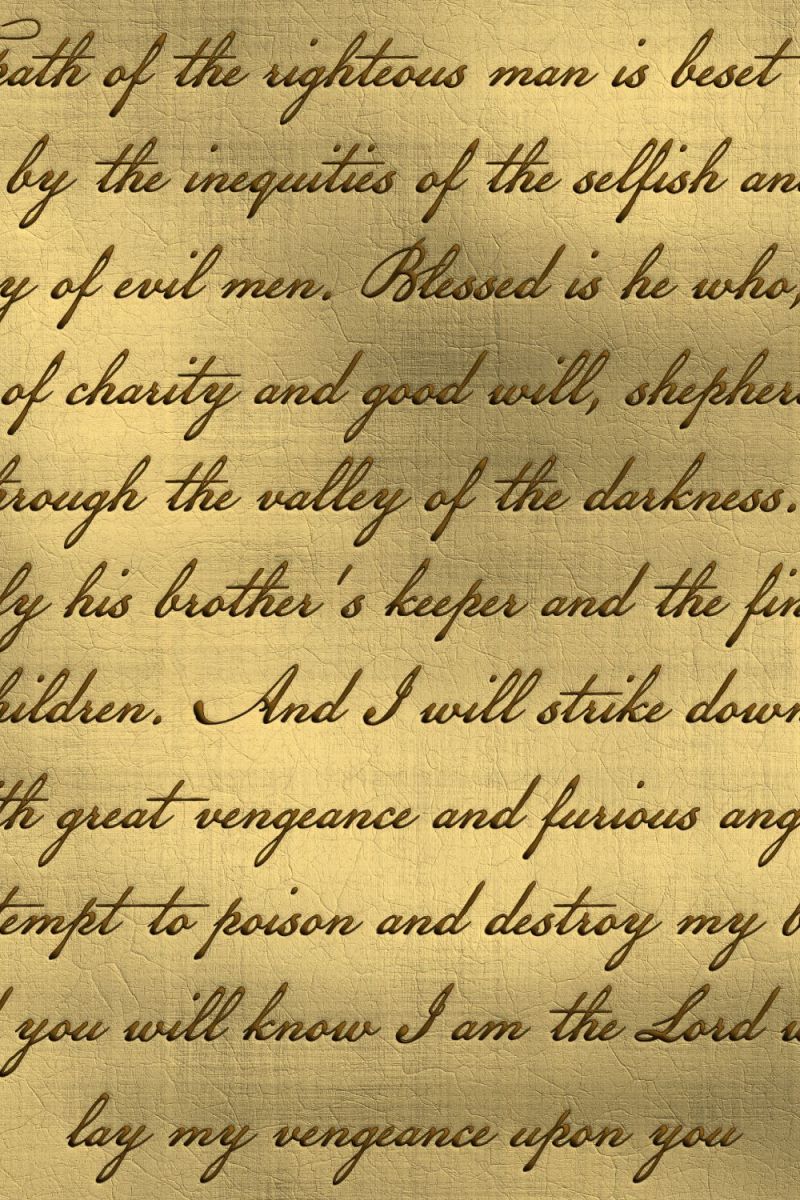 path of the righteous man is beset
by the inequities of the selfish and
y of evil men. Blessed is he who,
of charity and good will, shepher
hrough the valley of the darkness.
ly his brother's keeper and the fin
hildren. And I will strike down
th great vengeance and furious ang
tempt to poison and destroy my b
you will know I am the Lord w
lay my vengeance upon you